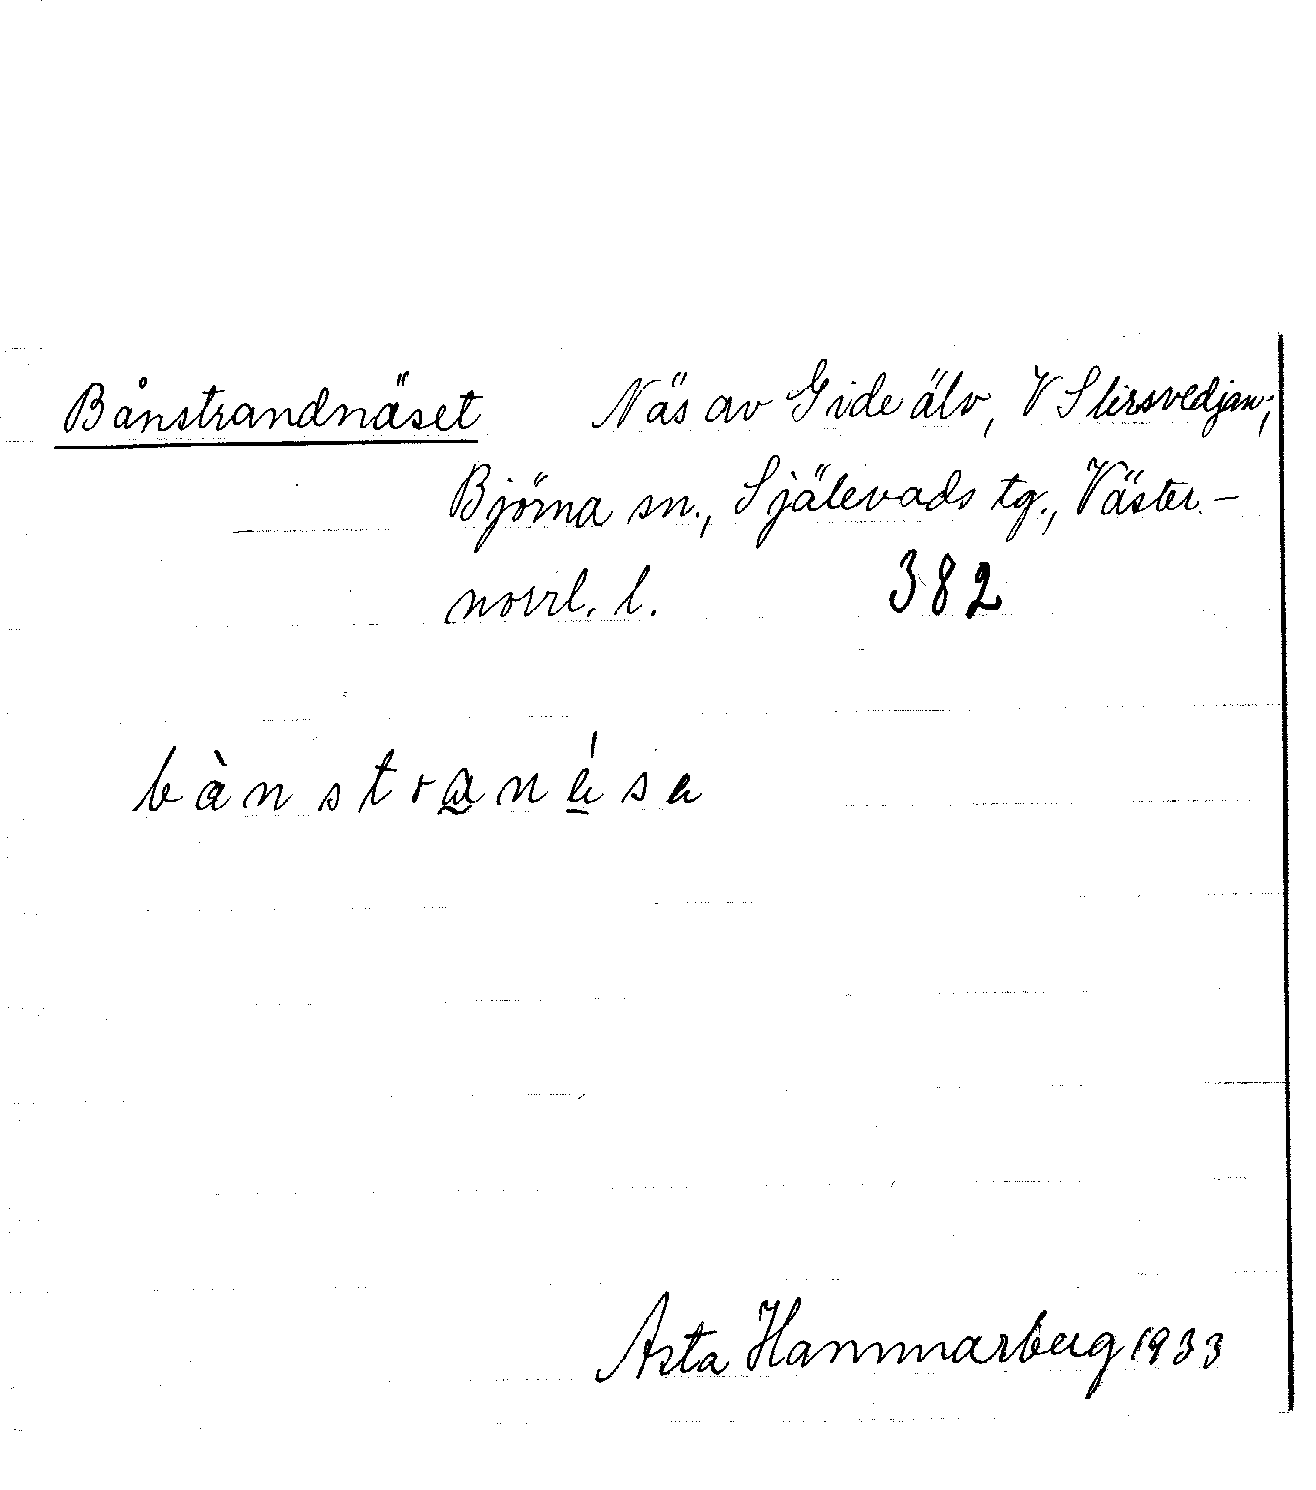 Bånstrandnäset Näs av Gide älv, V Slirsvedjan;
Björna sn., Själevads tg., Väster-
norrl. l. 382
bànstranésa
Asta Hammarberg 1933